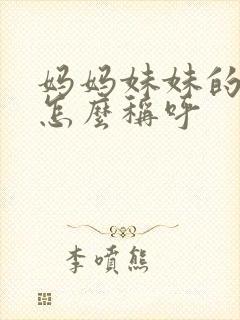 妈妈妹妹的
怎麼稱呼
李噴熊